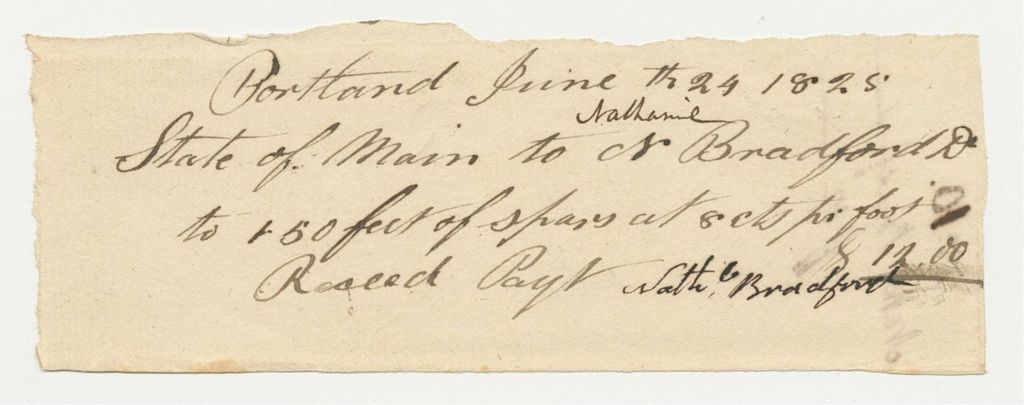 Portland June th 24 1825
Nathaniel
State of Main to N Bradford Dr
to 150 feet of spars at 8 cts pr foot
$ 12.00
Receed Payt Nathl Bradford